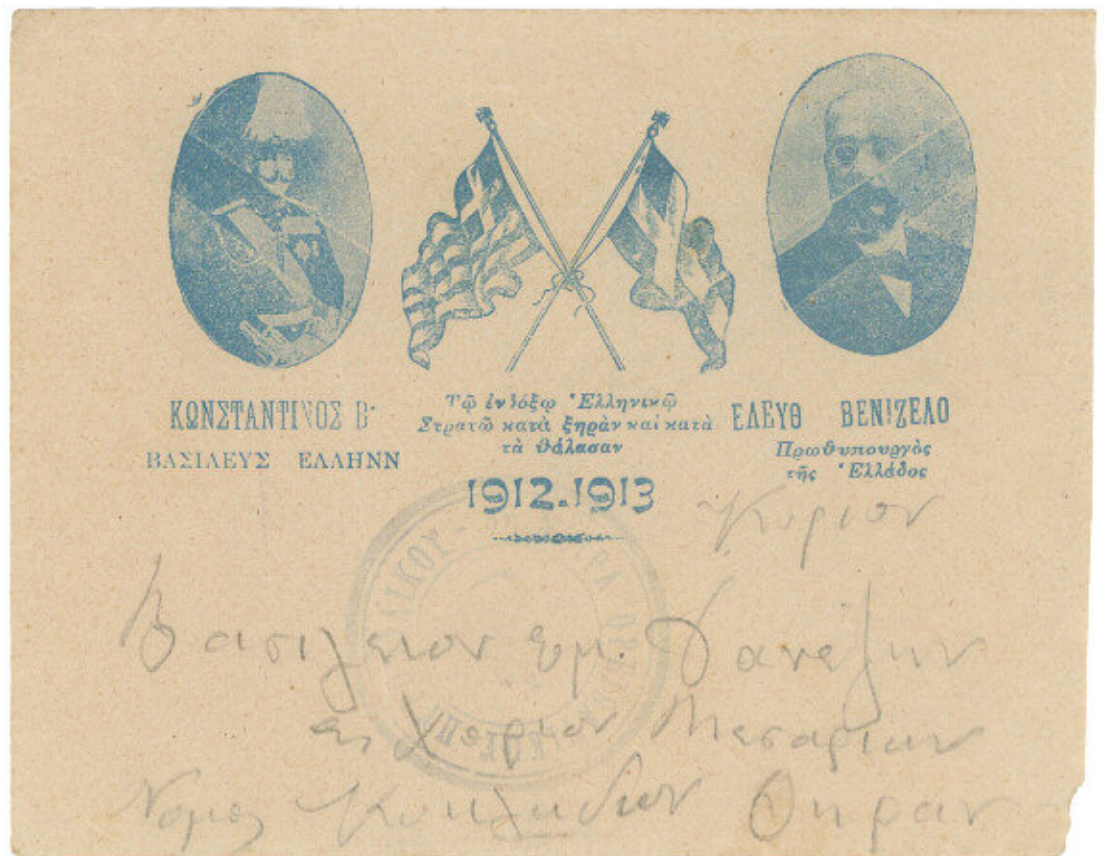 ΚΩΝΣΤΑΝΤΙΝΟΣ Β·
ΒΑΣΙΛΕΥΣ ΕΛΛΗΝΝ
Τῷ ἐνδόξῳ Ἑλληνικῷ
Στρατῷ κατὰ ξηρὰν καὶ κατὰ
τὰ θάλασαν
1912-1913
ΕΛΕΥΘ ΒΕΝΙΖΕΛΟ
Πρωθυπουργὸς
τῆς Ἑλλάδος
Κυριον
Βασιλειον Εμ. Δανέζην
εις Χοριον Μεσαριαν
Νομος Κυκλαδων Θηραν